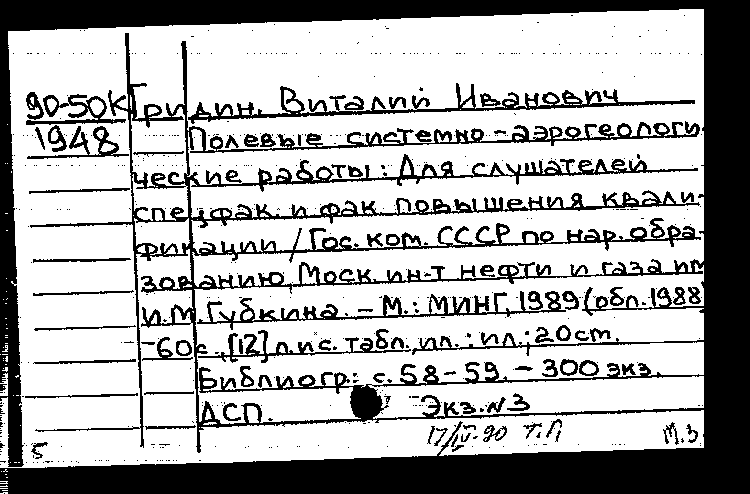 90-50К Гридин. Виталий Иванович
1948 Полевые системно-аэрогеологи-
ческие работы: Для слушателей
спецфак. и фак. повышения квали-
фикации / Гос. ком. СССР по нар. обра-
зованию, Моск. ин-т нефти и газа им
И.М. Губкина. – М.: МИНГ, 1989 (обл. 1988)
-60с., [12] л. ис. табл., ил. : ил.; 20 cm.
Библиогр.: с. 58-59. – 300 экз.
ДСП. Экз. N3
17/IV-90 Т.П М.З
5